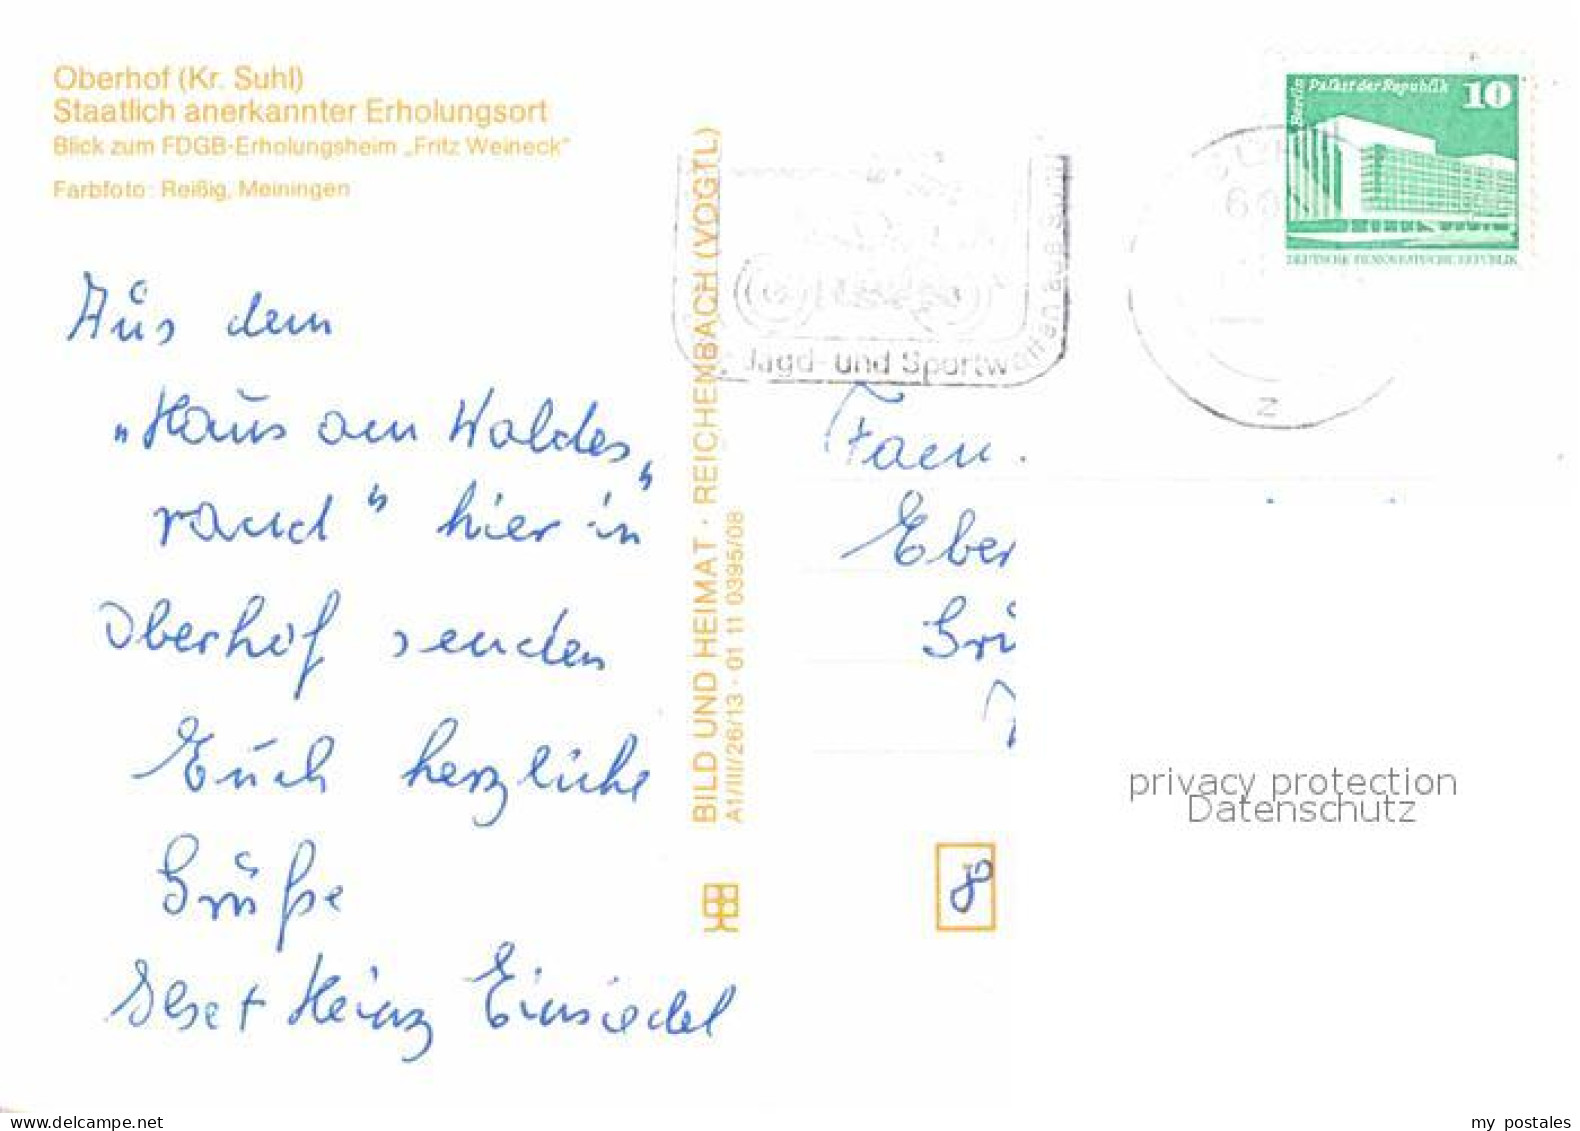 Oberhof (Kr. Suhl)
Staatlich anerkannter Erholungsort
Blick zum FDGB-Erholungsheim „Fritz Weineck"
Farbfoto: Reißig, Meiningen
Aus dem
„Haus am Waldes„
rand" hier in"
Oberhof senden
Euch herzliche
Grüße
Heinz Einsiedel
BILD UND HEIMAT · REICHENBACH (VOGTL)
A1/III/26/13 · 01 11 0395/08
Jagd- und Sportwaffen aus Suhl
Berlin Palast der Republik 10
DEUTSCHE DEMOKRATISCHE REPUBLIK
60
z
Fam.
Eber
Grü
privacy protection
Datenschutz
my postales
www.delcampe.net